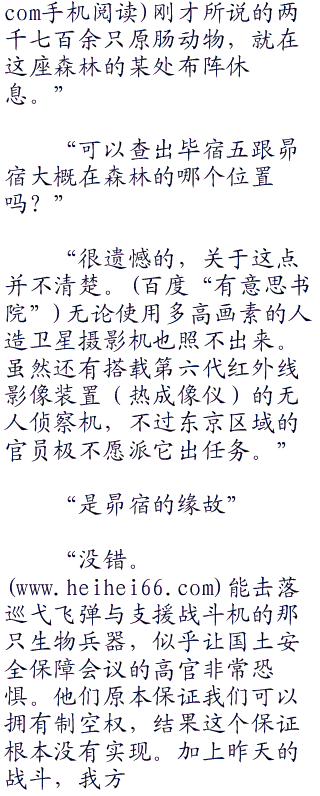 com手机阅读)刚才所说的两
千七百余只原肠动物，就在
这座森林的某处布阵休
息。”
“可以查出毕宿五跟昴
宿大概在森林的哪个位置
吗？”
“很遗憾的，关于这点
并不清楚。(百度“有意思书
院”)无论使用多高画素的人
造卫星摄影机也照不出来。
虽然还有搭载第六代红外线
影像装置（热成像仪）的无
人侦察机，不过东京区域的
官员极不愿派它出任务。”
“是昴宿的缘故”
“没错。
(www.heihei66.com)能击落
巡弋飞弹与支援战斗机的那
只生物兵器，似乎让国土安
全保障会议的高官非常恐
惧。他们原本保证我们可以
拥有制空权，结果这个保证
根本没有实现。加上昨天的
战斗，我方